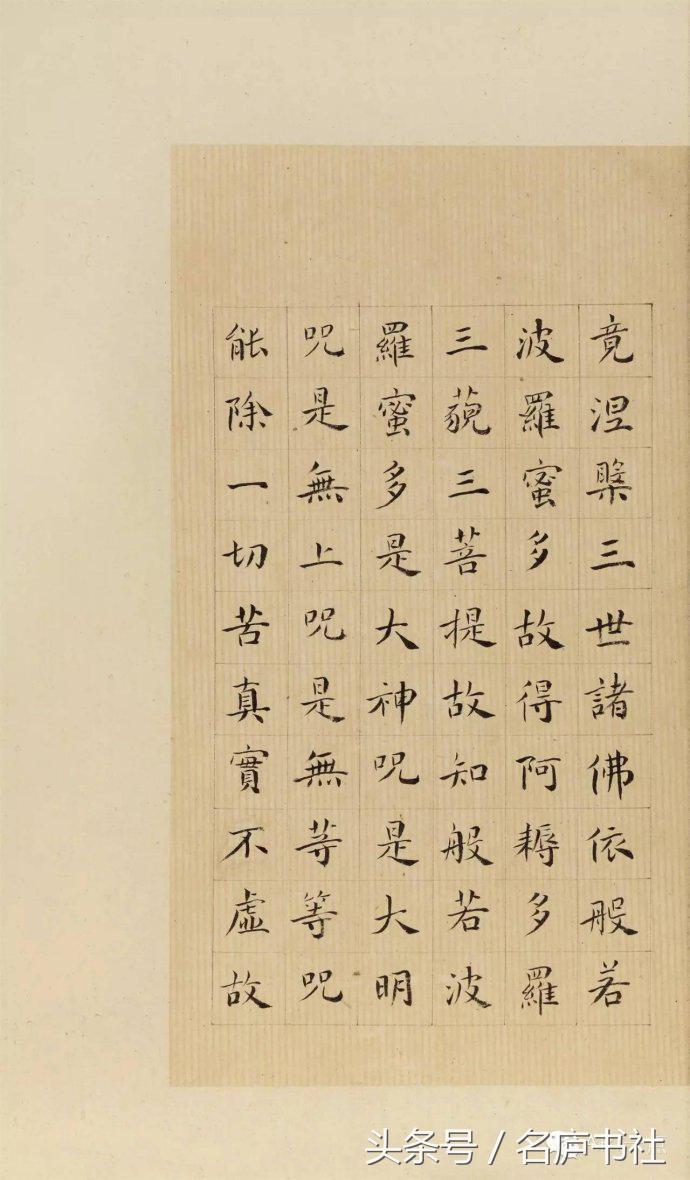 竟涅槃三世諸佛依般若
波羅蜜多故得阿耨多羅
三藐三菩提故知般若波
羅蜜多是大神咒是大明
咒是無上咒是無等等咒
能除一切苦真實不虛故
头条号 / 名庐书社